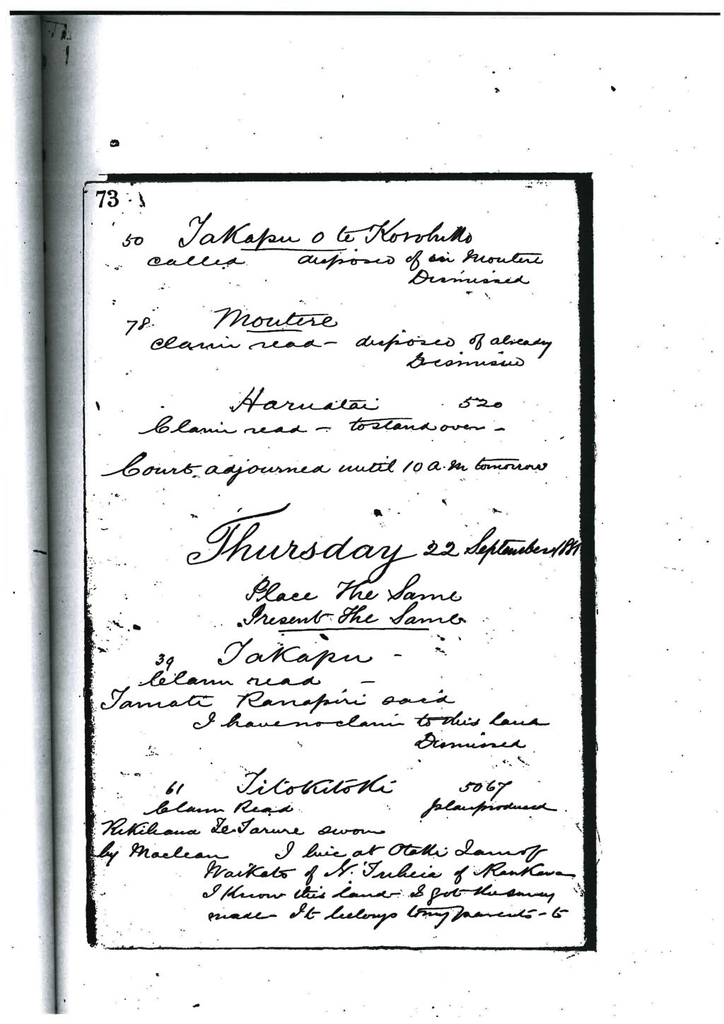 73
50 Takapu o te Korohiko
called disposed of in Moutere
Dismissed
78 Moutere
Claim read - disposed of already
Dismissed
Haruatai 520
Claim read - to stand over -
Court adjourned until 10 a.m tomorrow
Thursday 22 September
Place The Same
Present The Same
39 Takapu -
Claim read -
Tamati Ranapiri said
I have no claim to this land
Dismissed
61 Titokitoki 5067
Claim Read plan produced
sworn
by Maclean I live at Otaki I am of
Waikato of N. of
I know this land I got the survey
made It belongs to my parents - to